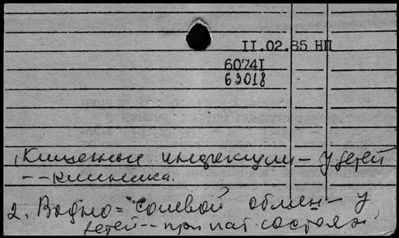 II.02.85 НП
6074I
63018
1. Кишечные инфекции - у детей
-- клиника.
2. Водно-солевой обмен - у
детей -- при пат. состоян.